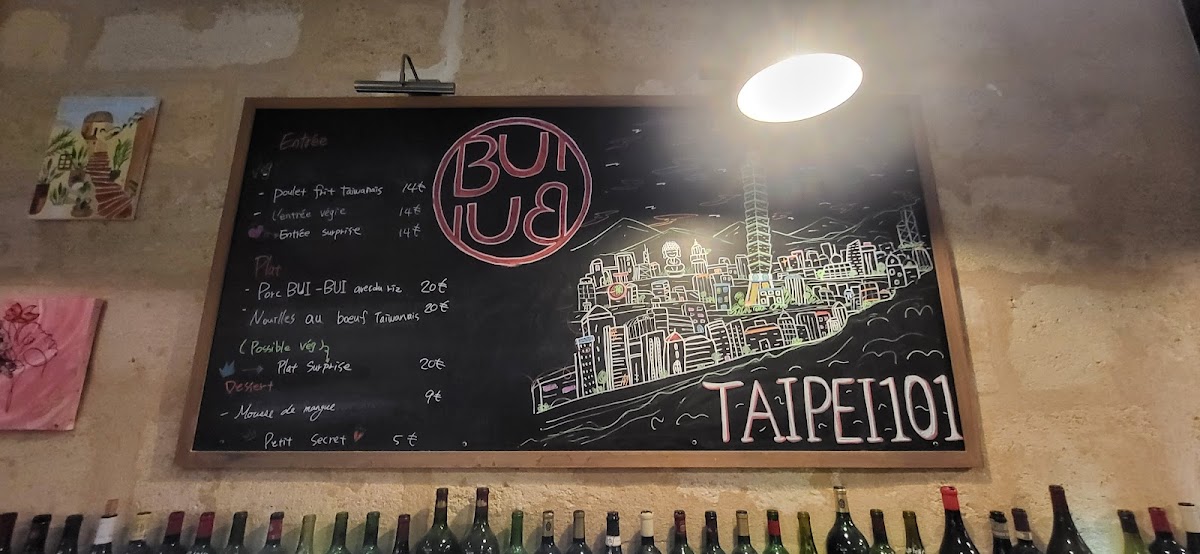 Entrée
- Poulet frit Taïwanais 14€
- L'entrée végie 14€
Entrée surprise 14€
Plat
- Porc BUI-BUI avec du riz 20€
- Nouilles au bœuf Taïwanais 20€
(Possible végé)
→ Plat Surprise 20€
Dessert
- Mousse de mangue 9€
Petit secret 5€
BUI
BUI
TAIPEI101